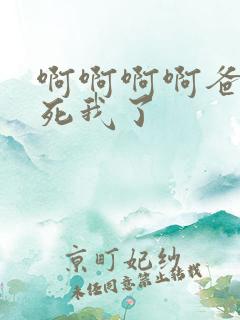 啊啊啊啊爸
死我了
京町妃纱
未经同意禁止转载